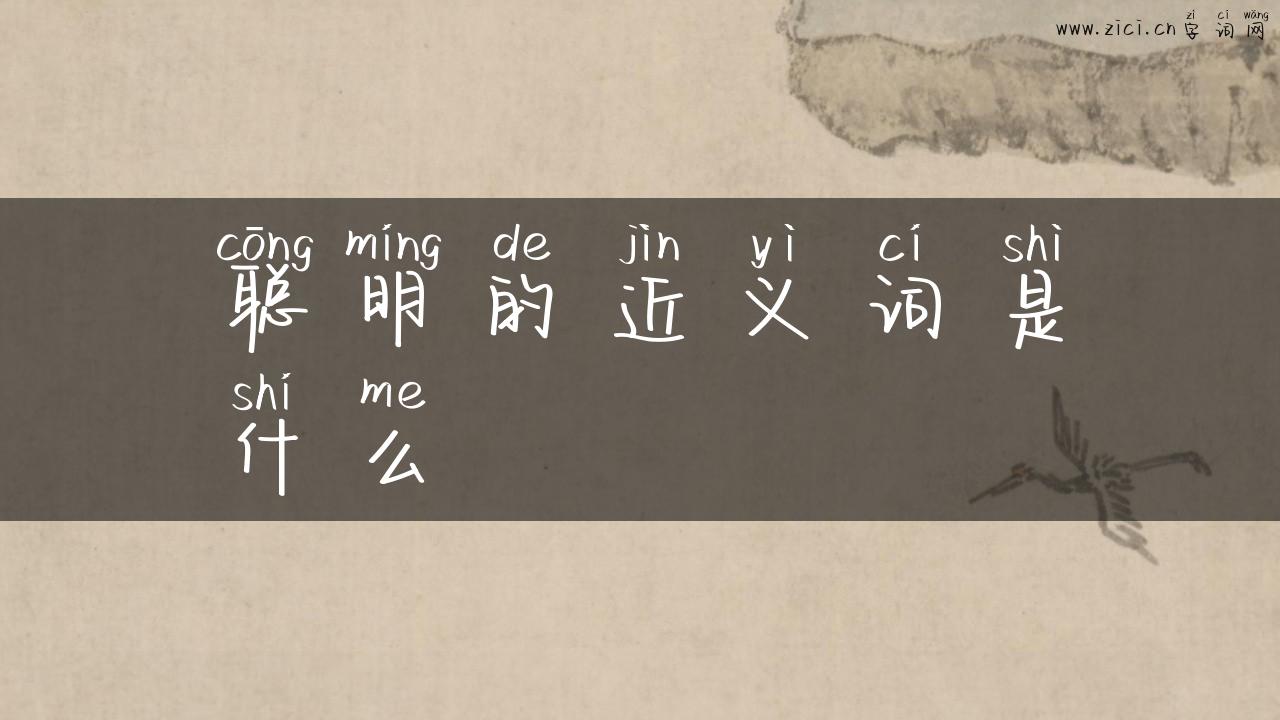 zì cí wǎng
www.zici.cn 字词网
cōng míng de jìn yì cí shì
聪明的近义词是
shí me
什么